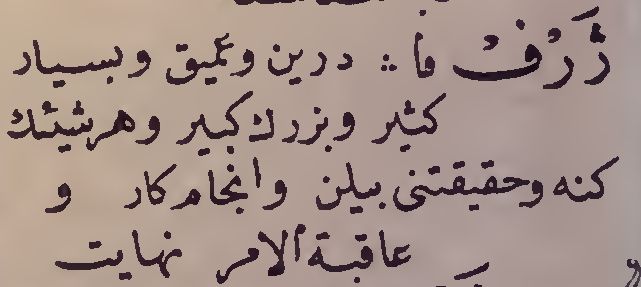 ژَرْفْ فا : درين وعميق وبسيار
كثير وبزرك كبير وهر شيئك
كنه وحقيقتنى بيلن وانجام كار و
عاقبة الامر نهايت